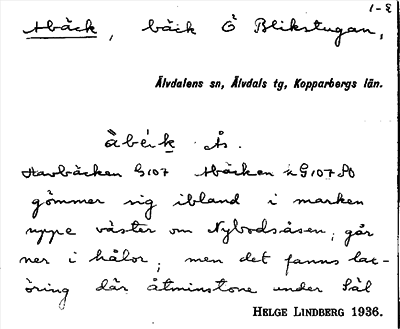 1-2
Abäck, bäck Ö Blikstugan,
Älvdalens sn, Älvdals tg, Kopparbergs län.
Åbä́ik Ås.
Havbäcken G107 Abäcken G107 SO
gömmer sig ibland i marken
uppe väster om Nybodsåsen, går
ner i hålor; men det fanns lax-
öring där åtminstone under
HELGE LINDBERG 1936.